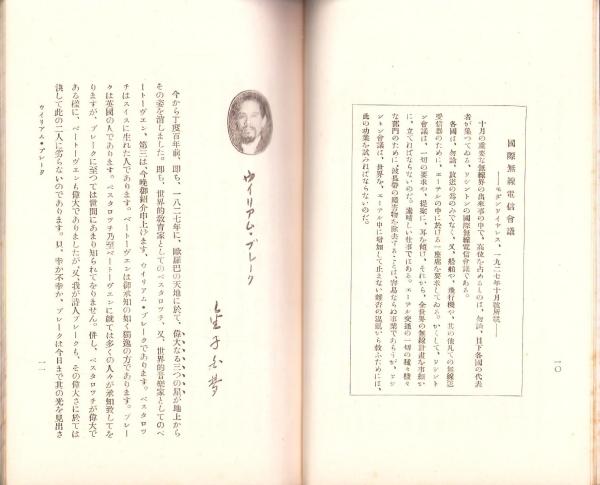 國際無線電信會議
――モダンワイヤレス、一九二七年十月號所説――
十月の重要な無線界の出來事の中で、高位を占めるものは、勿論、目下各國の代表
者が集つてゐる、ワシントンの國際無線電信會議である。
各國は、勿論、放送の爲のみでなく、又、船舶や、飛行機や、其の他凡ての無線送
受信器のために、エーテルの中に於ける一座席を要求してゐる。かくして、ワシント
ン會議は、一切の要求や、提案に、耳を傾け、それから、全世界の無線計畫を事細か
に、立てねばならないのだ。素晴しい仕事ではある。エーテル交通の一切の種々樣々
な部門のために、波長帶の障害物を除去することは、容易ならぬ事業であらうが、ワシ
ントン會議は、世界を、エーテル中に増加して止まない雜音の混亂から救ふためには、
此の勸業を試みねばならないのだ。
一〇
ウイリアム・ブレーク
今から丁度百年前、即ち、一八二七年に、歐羅巴の天地に於て、偉大なる三つの星が地上から
その姿を消しました。即ち、世界的教育家としてのペスタロツヂ、又、世界的音樂家としてのベ
ートーヴエン、第三は、今晩御紹介申上げます、ウイリアム・ブレークであります。ペスタロツ
チはスイスに生れた人であります。ベートーヴエンは御承知の如く獨逸の方であります。ブレー
クは英國の人であります。ペスタロツヂ乃至ベートーヴエンに就ては多くの人々が承知致してを
りますが、ブレークに至つては世間にあまり知られてをりません。併し、ペスタロツヂが偉大で
ある樣に、ベートーヴエンも偉大でありましたが、又、我が詩人ブレークも、その偉大さに於ては
決して此の二人に劣らないのであります。只、幸か不幸か、ブレークは今日まで其の光を見出さ
ウイリアム・ブレーク
一一